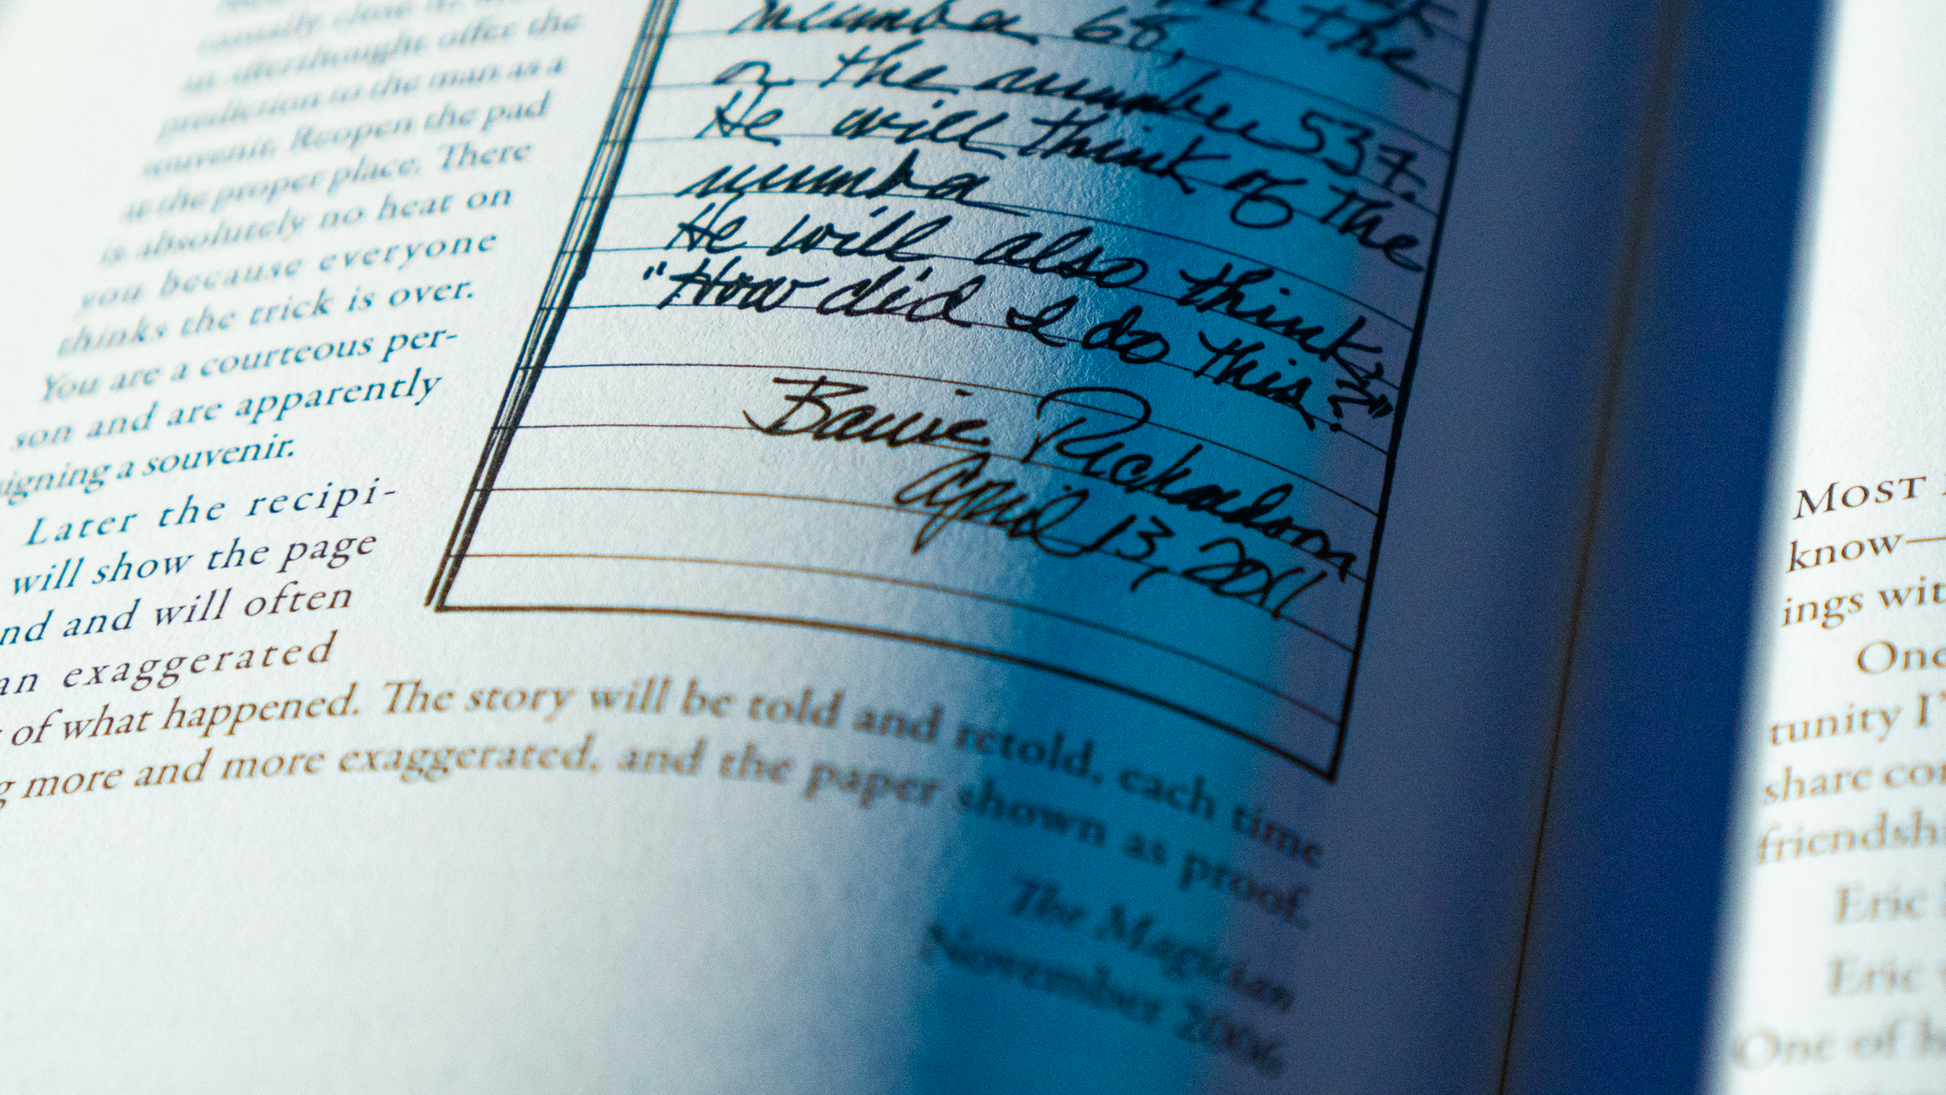 casually close
an afterthought offer the
prediction to the man as a
souvenir. Reopen the pad
at the proper place. There
is absolutely no heat on
you because everyone
thinks the trick is over.
You are a courteous per-
son and are apparently
signing a souvenir.
Later the recipi-
will show the page
nd and will often
an exaggerated
of what happened. The story will be told and retold, each time
g more and more exaggerated, and the paper shown as proof.
The Magician
November 2006
the
number 68,
or the number 537.
He will think of the
number
He will also think,
"How did I do this?"
Barrie Richardson
April 13, 2011
MOST
know—
ings wit
One
tunity I'
share con
friendsh
Eric
Eric
One of h